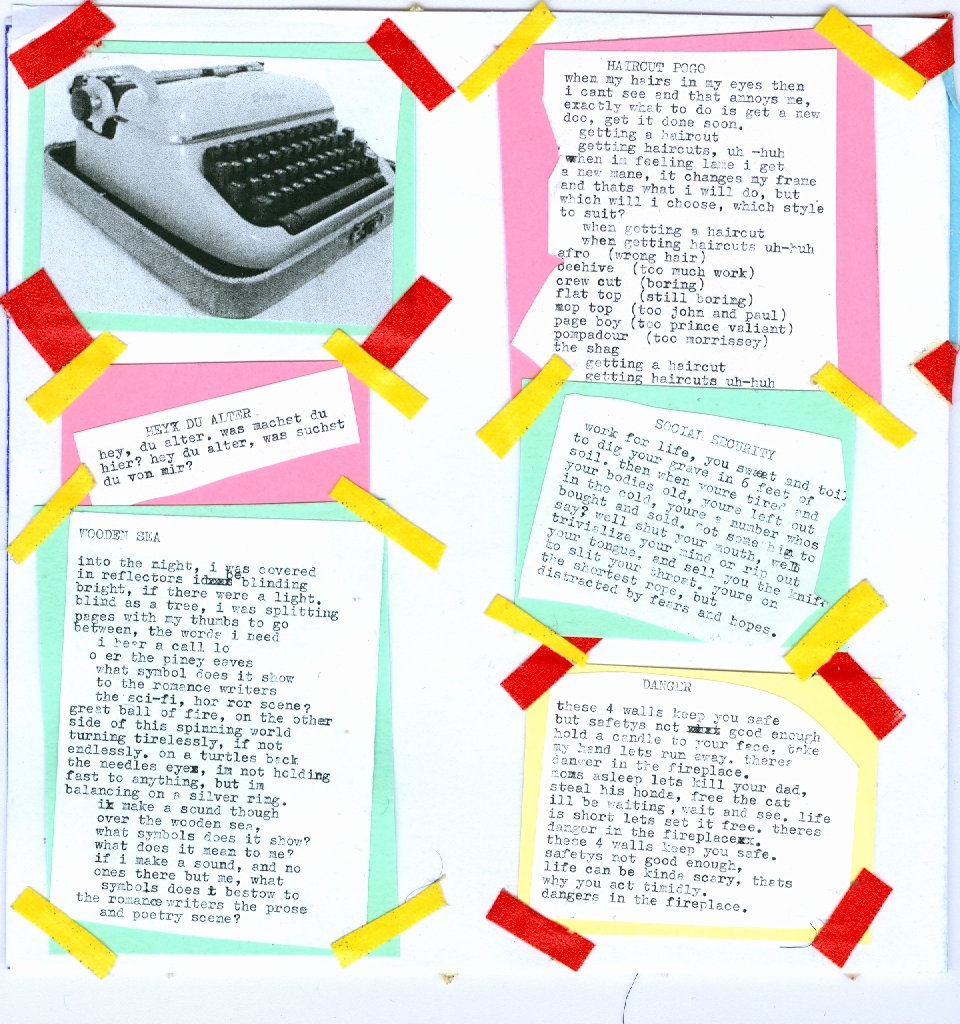 HEYX DU ALTER
hey, du alter. was machst du
hier? hey du alter, was suchst
du von mir?
WOODEN SEA
into the night, i was covered
in reflectors id be blinding
bright, if there were a light.
blind as a tree, i was splitting
pages with my thumbs to go
between, the words i need
i hear a call lo
o er the piney eaves
what symbol does it show
to the romance writers
the sci-fi, hor ror scene?
great ball of fire, on the other
side of this spinning world
turning tirelessly, if not
endlessly. on a turtles back
the needles eyes, im not holding
fast to anything, but im
balancing on a silver ring.
ix make a sound though
over the wooden sea,
what symbols does it show?
what does it mean to me?
if i make a sound, and no
ones there but me, what
symbols does t bestow to
the romance writers the prose
and poetry scene?
HAIRCUT POGO
when my hairs in my eyes then
i cant see and that annoys me,
exactly what to do is get a new
doo, get it done soon.
getting a haircut
getting haircuts, uh -huh
when im feeling lame i get
a new mane, it changes my frame
and thats what i will do, but
which will i choose, which style
to suit?
when getting a haircut
when getting haircuts uh-huh
afro (wrong hair)
beehive (too much work)
crew cut (boring)
flat top (still boring)
mop top (too john and paul)
page boy (too prince valiant)
pompadour (too morrissey)
the shag
getting a haircut
getting haircuts uh-huh
SOCIAL SECURITY
work for life, you sweat and toil
to dig your grave in 6 feet of
soil. then when youre tired and
your bodies old, youre left out
in the cold, youre a number whos
bought and sold. Got something to
say? well shut your mouth, well
trivialize your mind or rip out
your tongue. and sell you the knife
to slit your throat. youre on
the shortest rope, but
distracted by fears and hopes.
DANGER
these 4 walls keep you safe
but safetys not good enough
hold a candle to your face, take
my hand lets run away. theres
danger in the fireplace.
moms asleep lets kill your dad,
steal his honda, free the cat
ill be waiting , wait and see. life
is short lets set it free. theres
danger in the fireplacexx.
these 4 walls keep you safe.
safetys not good enough,
life can be kinda scary, thats
why you act timidly.
dangers in the fireplace.